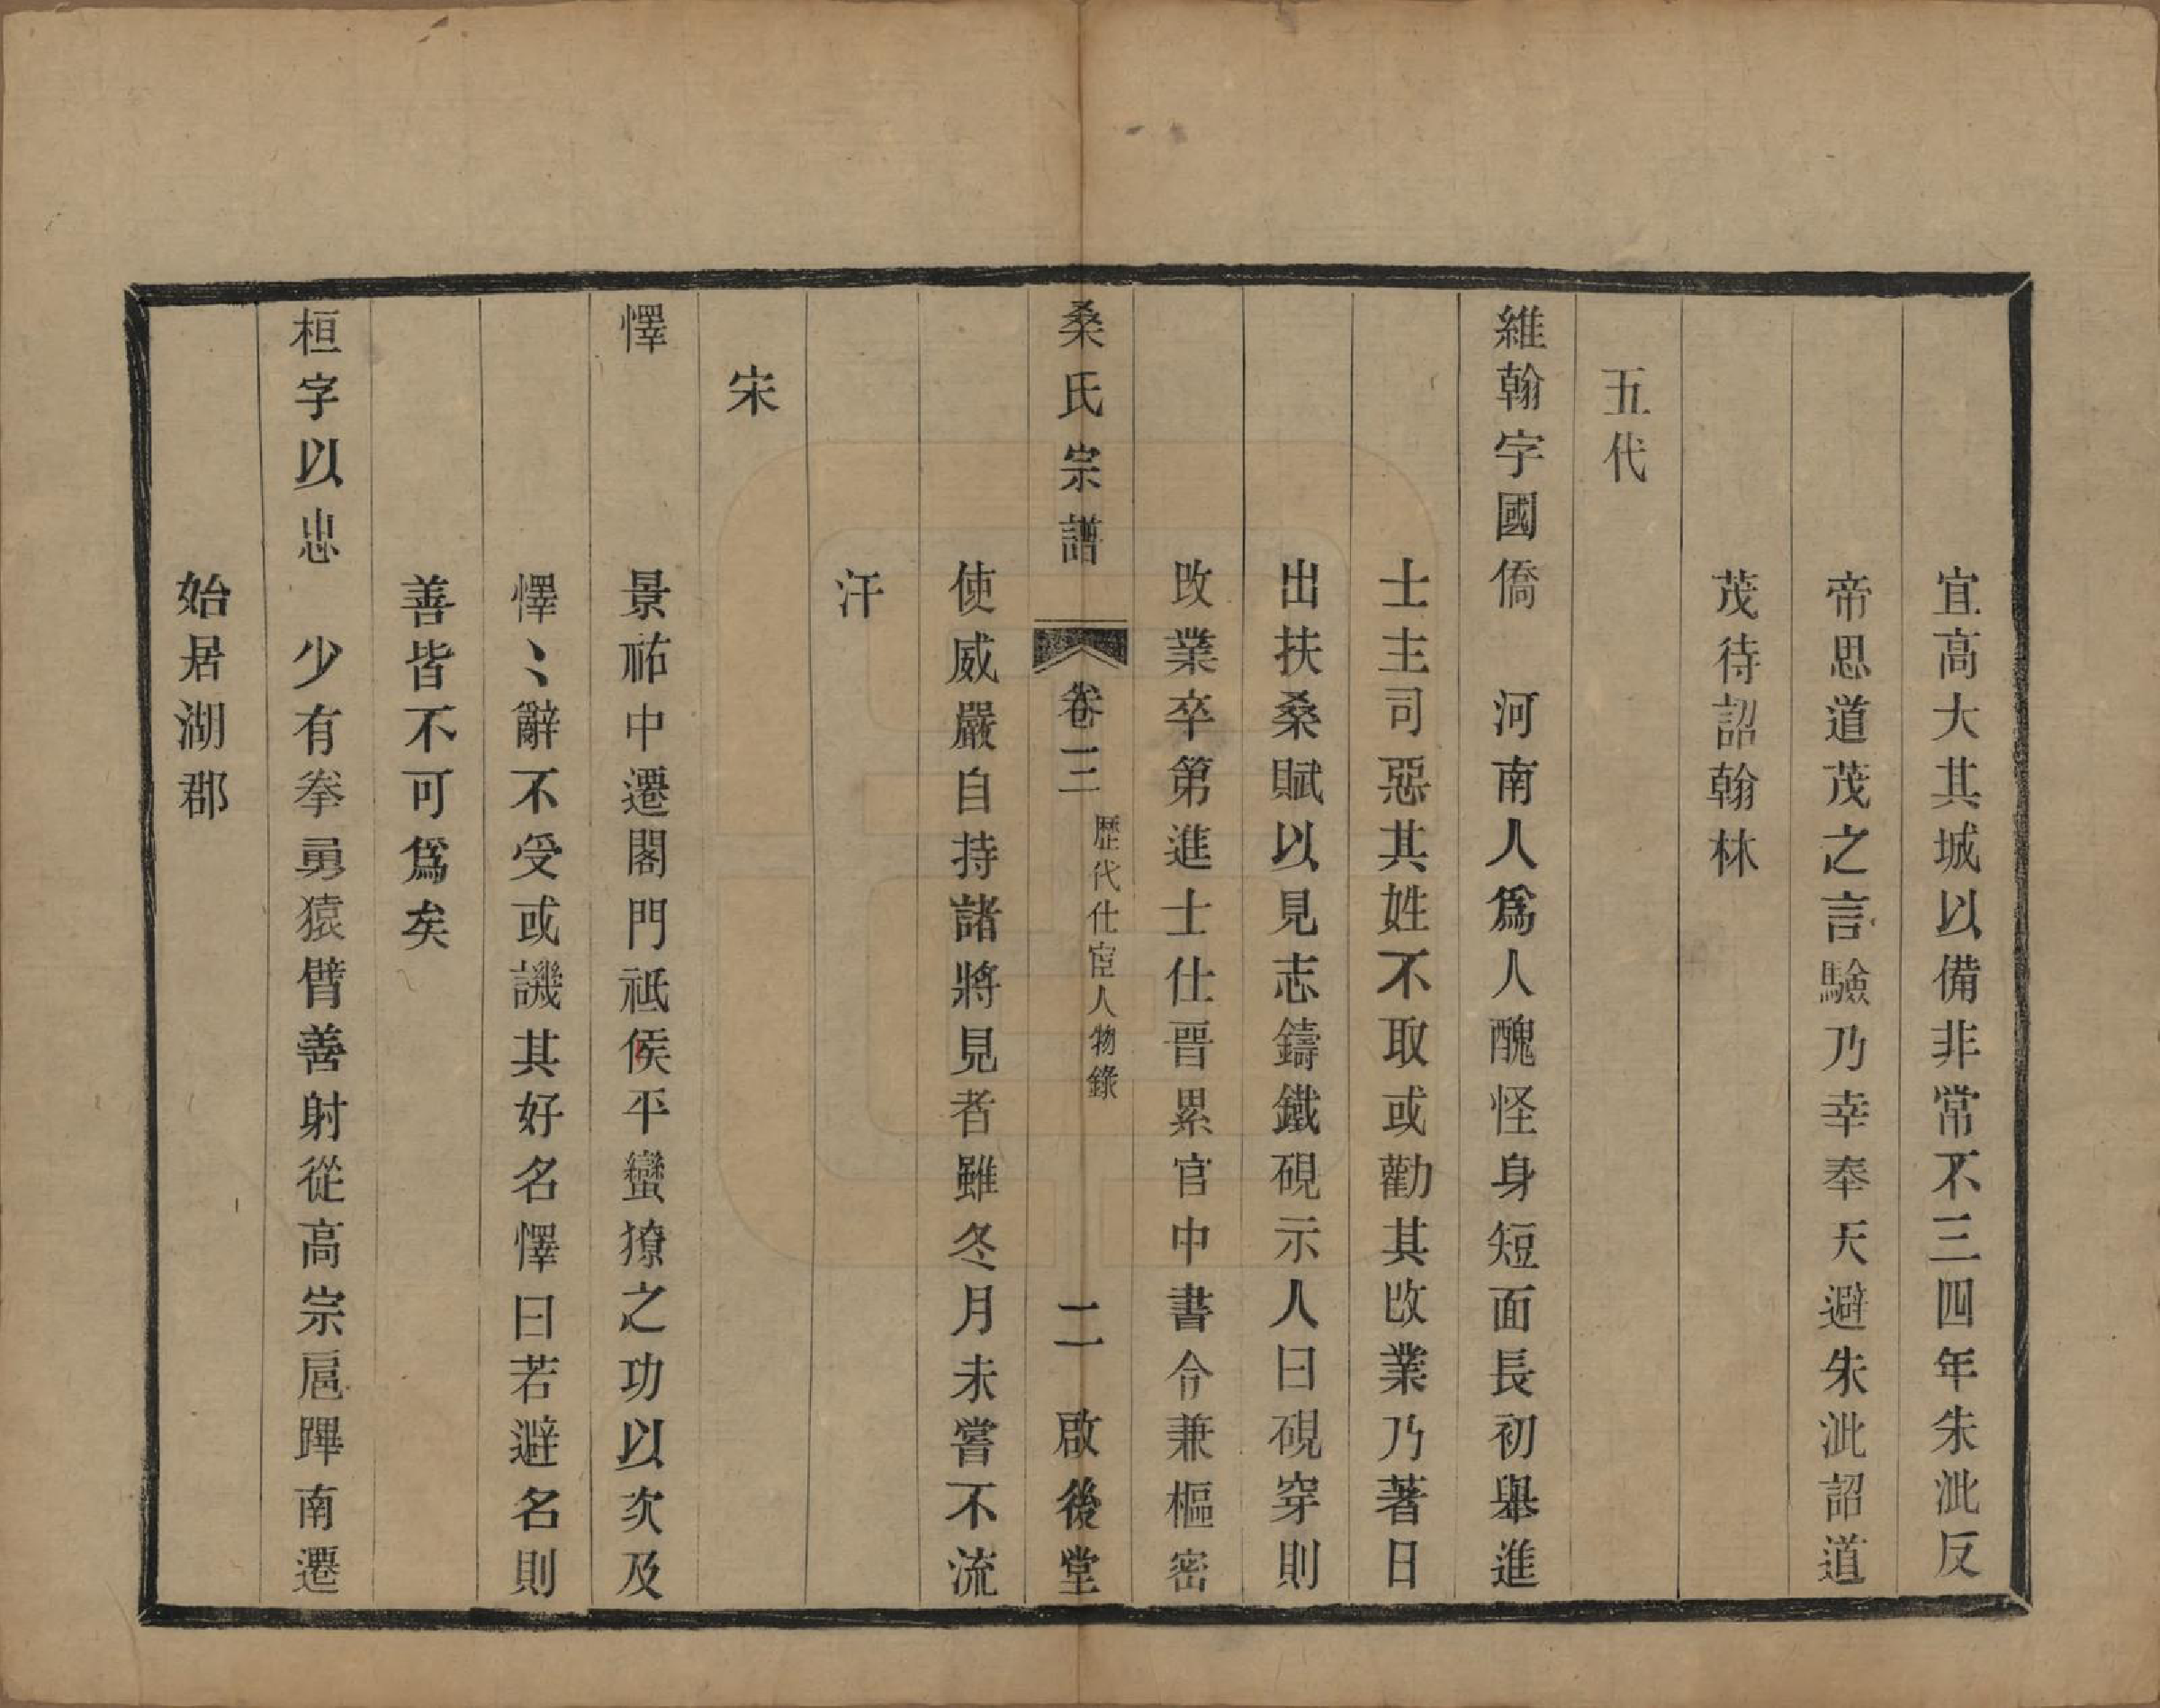 宜高大其城以備非常不三四年朱泚反
帝思道茂之言驗乃幸奉天避朱泚詔道
茂待詔翰林
五代
維翰字國僑　河南人爲人醜怪身短面長初舉進
士主司惡其姓不取或勸其改業乃著日
出扶桑賦以見志鑄鐵硯示人曰硯穿則
改業卒第進士仕晋累官中書令兼樞密
桑氏宗譜　卷三　歷代仕宦人物錄　二　啟後堂
使威嚴自持諸將見者雖冬月未嘗不流
汗
宋
懌　景祐中遷閣門祗侯平蠻獠之功以次及
懌〻辭不受或譏其好名懌曰若避名則
善皆不可爲矣
桓字以忠　少有拳勇猿臂善射從高宗扈蹕南遷
始居湖郡